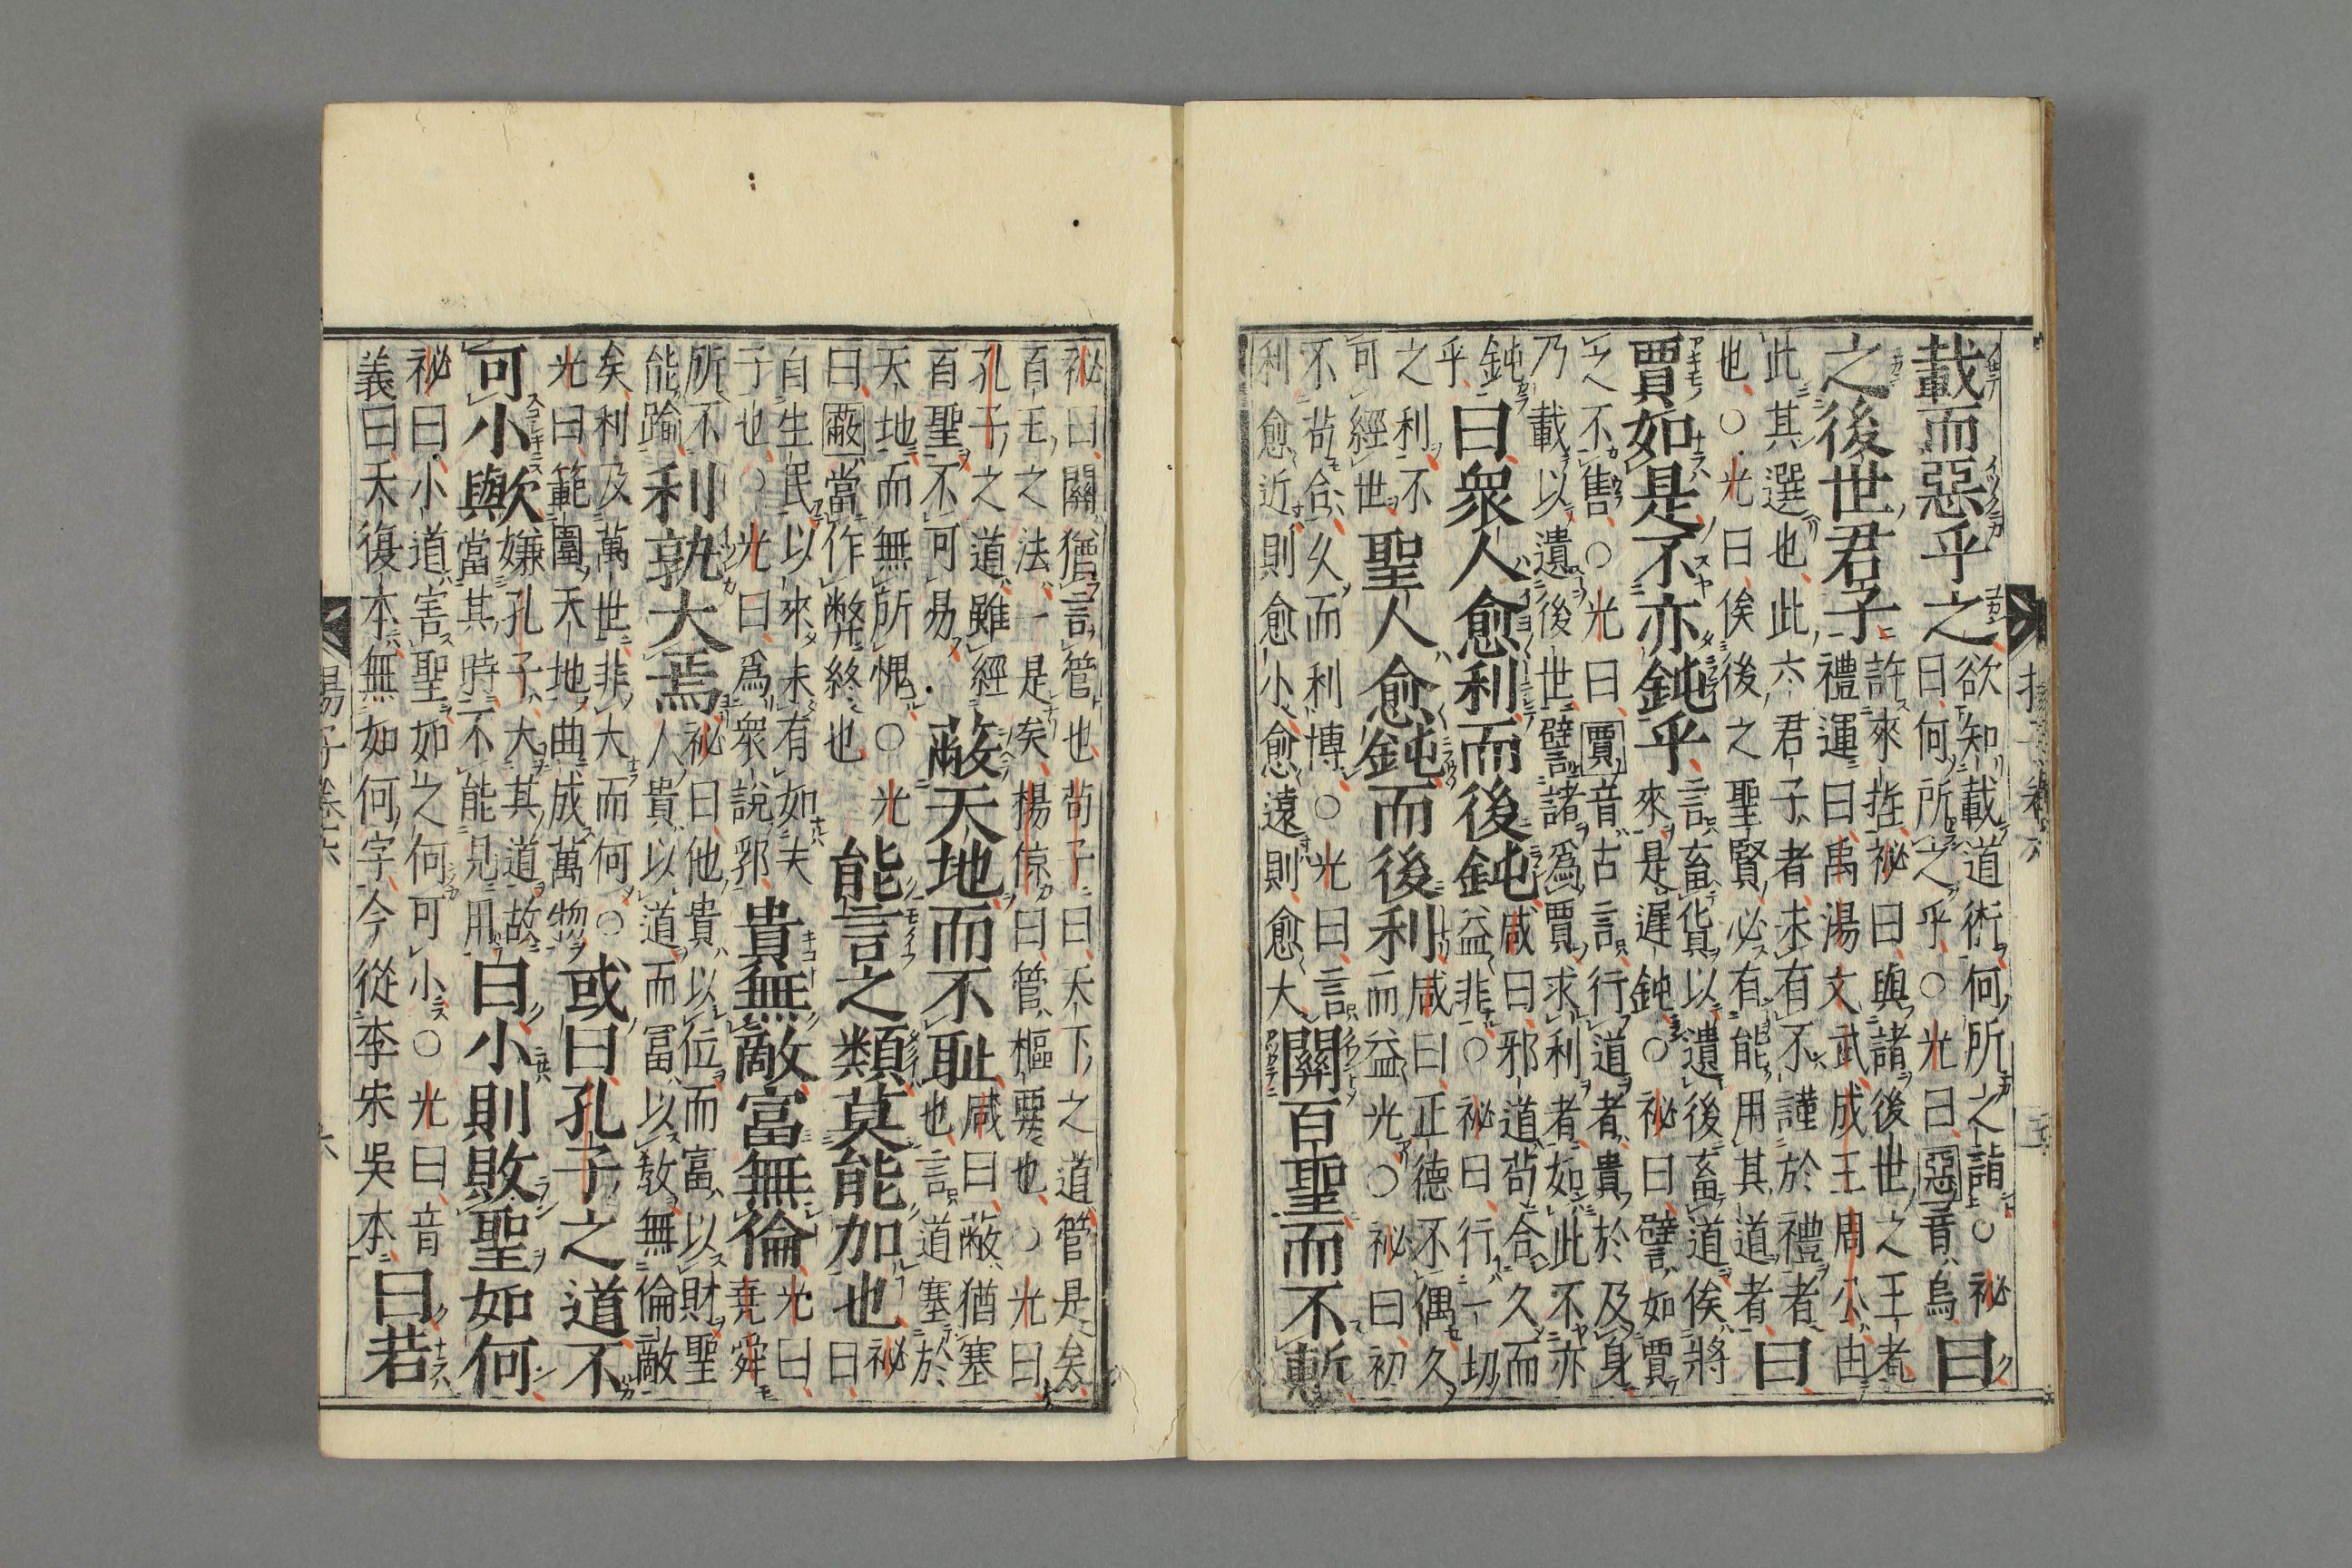 載而惡乎之
欲知載道術何所之詣○祕
曰何所之乎○光曰惡音烏
曰
之後世君子
許來哲祕曰與諸後世之王者
禮運曰禹湯文武成王周公由
此其選也此六君子者未有不謹於禮者
也○光曰俟後之聖賢必有能用其道者
曰
賈如是不亦鈍乎
言畜貨以遺後畜道俟將
來是遲鈍○祕曰譬如賈
之不售○光曰賈音古言行道者貴於及身
乃載以遺後世譬諸爲賈求利者如此不亦
鈍
乎
曰衆人愈利而後鈍
咸曰邪道苟合久而
益非○祕曰行一切
之利不
可經世
聖人愈鈍而後利
咸曰正德不偶久
而益光○祕曰初
不苟合久而利博○光曰言
利愈近則愈小愈遠則愈大
關百聖而不慙
祕曰關猶言管也荀子曰天下之道管是矣
百王之法一是矣楊倞曰管樞要也○光曰
孔子之道雖經
百聖不可易
蔽天地而不恥
咸曰蔽猶塞
也言道塞於
天地而無所愧○光
曰蔽當作弊終也
能言之類莫能加也
祕
曰
自生民以來未有如夫
子也○光曰爲衆說郛
貴無敵富無倫
光曰
堯舜
所不
能踰
利孰大焉
祕曰他貴以位而富以財聖
人貴以道而冨以敎無倫敵
矣利及萬世非大而何○
光曰範圍天地曲成萬物
或曰孔子之道不
可小歟
嫌孔子大其道故
當其時不能見用
曰小則敗聖如何
祕曰小道害聖如之何可小○光曰音
義曰天復本無如何字今從李宋吳本
曰若
揚子卷六